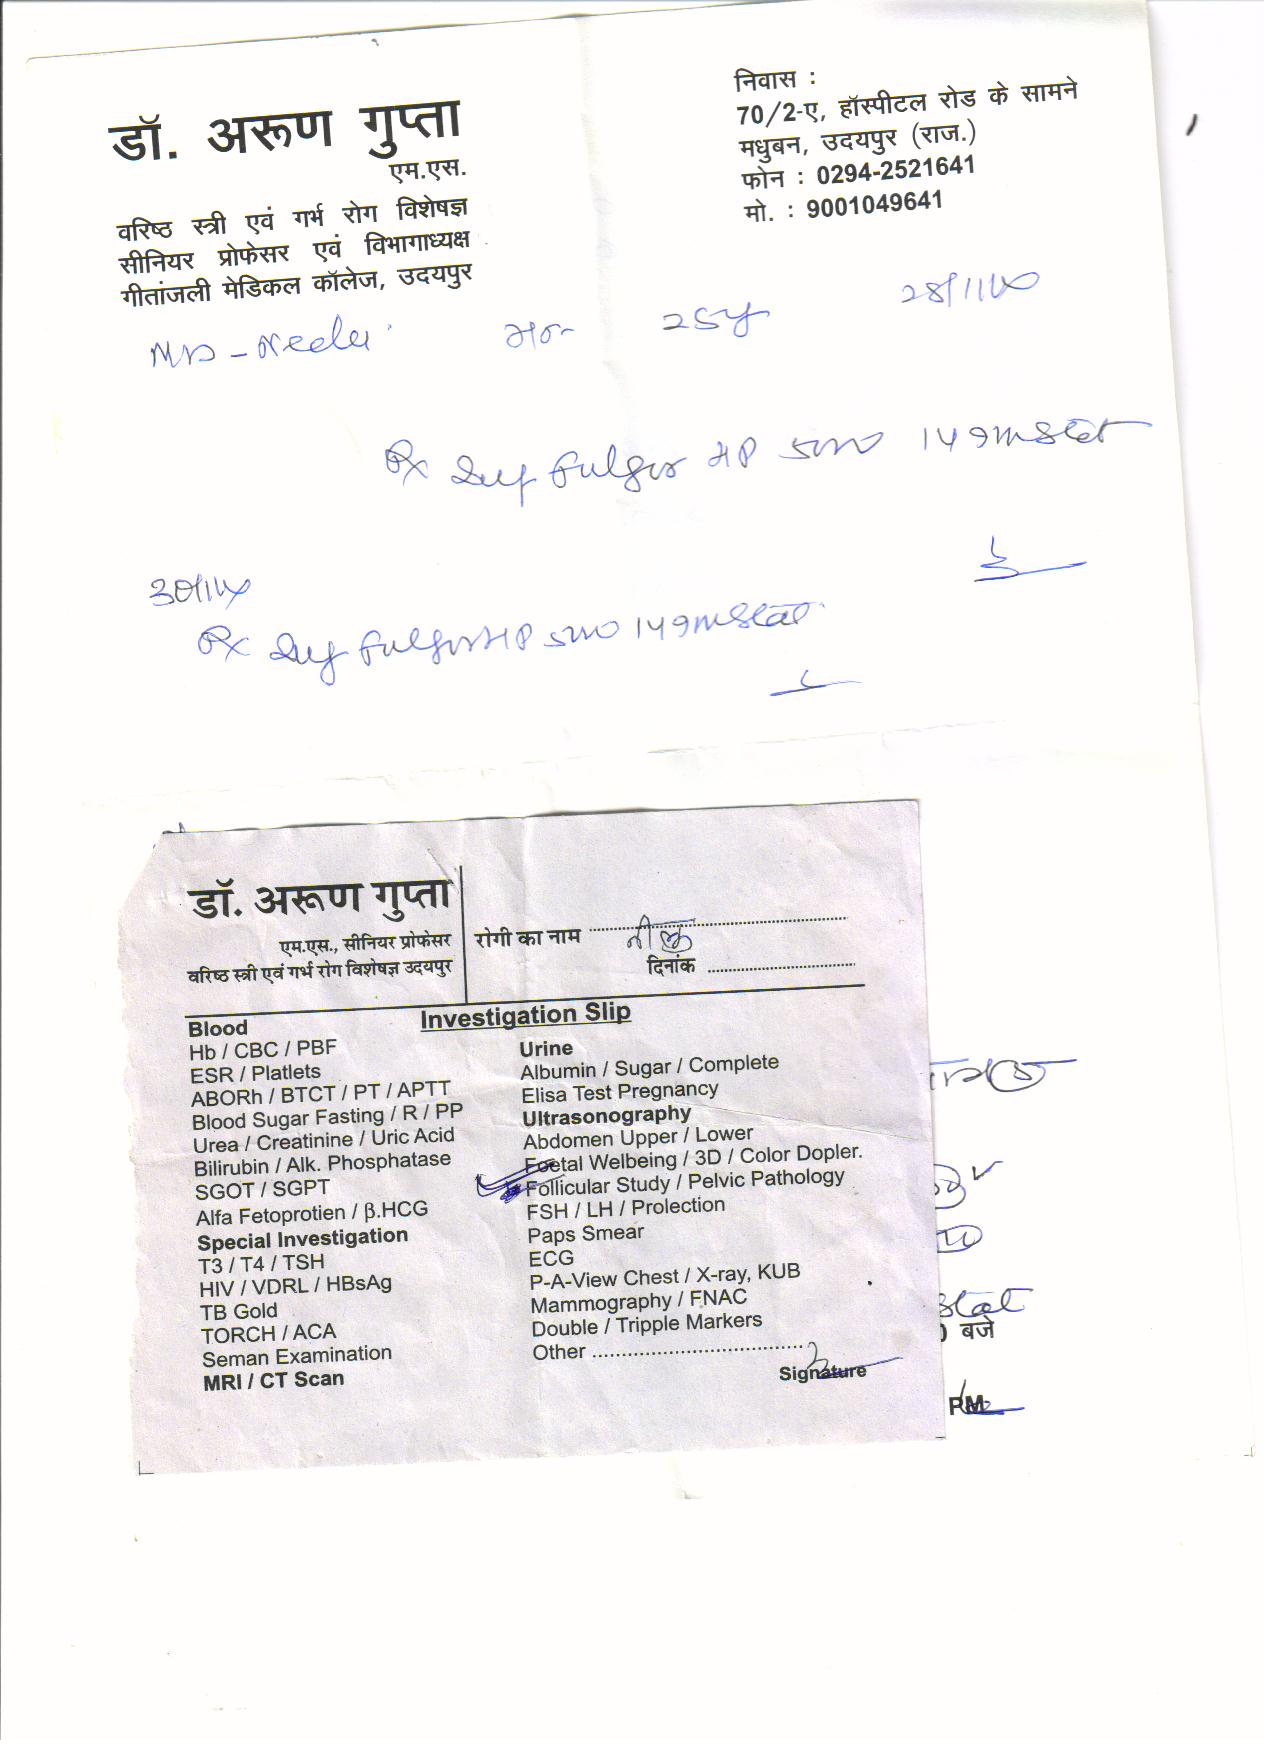 डॉ. अरूण गुप्ता
एम.एस.
वरिष्ठ स्त्री एवं गर्भ रोग विशेषज्ञ
सीनियर प्रोफेसर एवं विभागाध्यक्ष
गीतांजली मेडिकल कॉलेज, उदयपुर
निवास :
70/2-ए, हॉस्पीटल रोड के सामने
मधुबन, उदयपुर (राज.)
फोन : 0294-2521641
मो. : 9001049641
Rx
Rx
डॉ. अरूण गुप्ता
एम.एस., सीनियर प्रोफेसर
वरिष्ठ स्त्री एवं गर्भ रोग विशेषज्ञ उदयपुर
रोगी का नाम
दिनांक
Investigation Slip
Blood
Hb / CBC / PBF
ESR / Platlets
ABORh / BTCT / PT / APTT
Blood Sugar Fasting / R / PP
Urea / Creatinine / Uric Acid
Bilirubin / Alk. Phosphatase
SGOT / SGPT
Alfa Fetoprotien / β.HCG
Special Investigation
T3 / T4 / TSH
HIV / VDRL / HBsAg
TB Gold
TORCH / ACA
Seman Examination
MRI / CT Scan
Urine
Albumin / Sugar / Complete
Elisa Test Pregnancy
Ultrasonography
Abdomen Upper / Lower
Foetal Welbeing / 3D / Color Dopler.
Follicular Study / Pelvic Pathology
FSH / LH / Prolection
Paps Smear
ECG
P-A-View Chest / X-ray, KUB
Mammography / FNAC
Double / Tripple Markers
Other
Signature
stat
बजे
PM